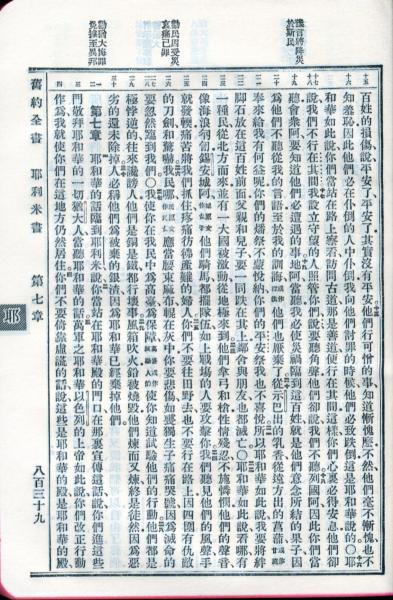 豫言將降災
於斯民
勸民因受災
哀痛己罪
勸猶大悔罪
免擄至異邦
百姓的損傷說平安了平安了其實沒有平安他們行可憎的事知道慚愧麼不然他們毫不慚愧也不
知羞恥因此他們必在仆倒的人中仆倒我向他們討罪的時候他們必致跌倒這是耶和華說的〇耶
和華如此說你們當站在路上察看訪問古道那是善道便行在其間這樣你們心裏必得安息他們卻
說我們不行在其間我設立守望的人照管你們說要聽角聲他們卻說我們不聽列國阿因此你們當
聽會衆阿要知道他們必遭遇的事地阿當聽我必使災禍臨到這百姓就是他們意念所結的果子因
為他們不聽從我的言語至於我的訓誨他們也厭棄了從示巴出的乳香從遠方出的菖蒲
奉來給我有何益呢你們的燔祭不蒙悅納你們的平安祭我也不喜悅所以耶和華如此說我要將絆
脚石放在這百姓前面父親和兒子要一同跌在其上鄰舍與朋友也都滅亡〇耶和華如此說看哪有
一種民從北方而來並有一大國被激動從地極來到他們拿弓和槍性情殘忍不施憐憫他們的聲音
像海浪匉訇錫安城阿他們騎馬都擺隊伍如上戰場的人要攻擊你我們聽見他們的風聲手
就發輭痛苦將我們抓住疼痛彷彿產難的婦人你們不要往田野去也不要行在路上因四圍有仇敵
的刀劍和驚嚇我民哪應當腰束麻布輥在灰中你要悲傷如喪獨生子痛痛哭號因為滅命的
要忽然臨到我們〇我使你在我民中為高臺為保障使你知道試驗他們的行動他們都是
極悖逆的往來讒謗人他們是銅是鐵都行壞事風箱吹火鉛被燒毀他們煉而又煉終是徒然因為惡
劣的還未除掉人必稱他們為被棄的銀渣因為耶和華已經棄掉他們
第七章 耶和華的話臨到耶利米說你當站在耶和華殿的門口在那裏宣傳這話說你們進這些
門敬拜耶和華的一切猶大人當聽耶和華的話萬軍之耶和華以色列的上帝如此說你們改正行動
作為我就使你們在這地方仍然居住你們不要倚靠虛謊的話說這些是耶和華的殿是耶和華的殿
舊約全書 耶利米書 第七章 八百三十九
耶